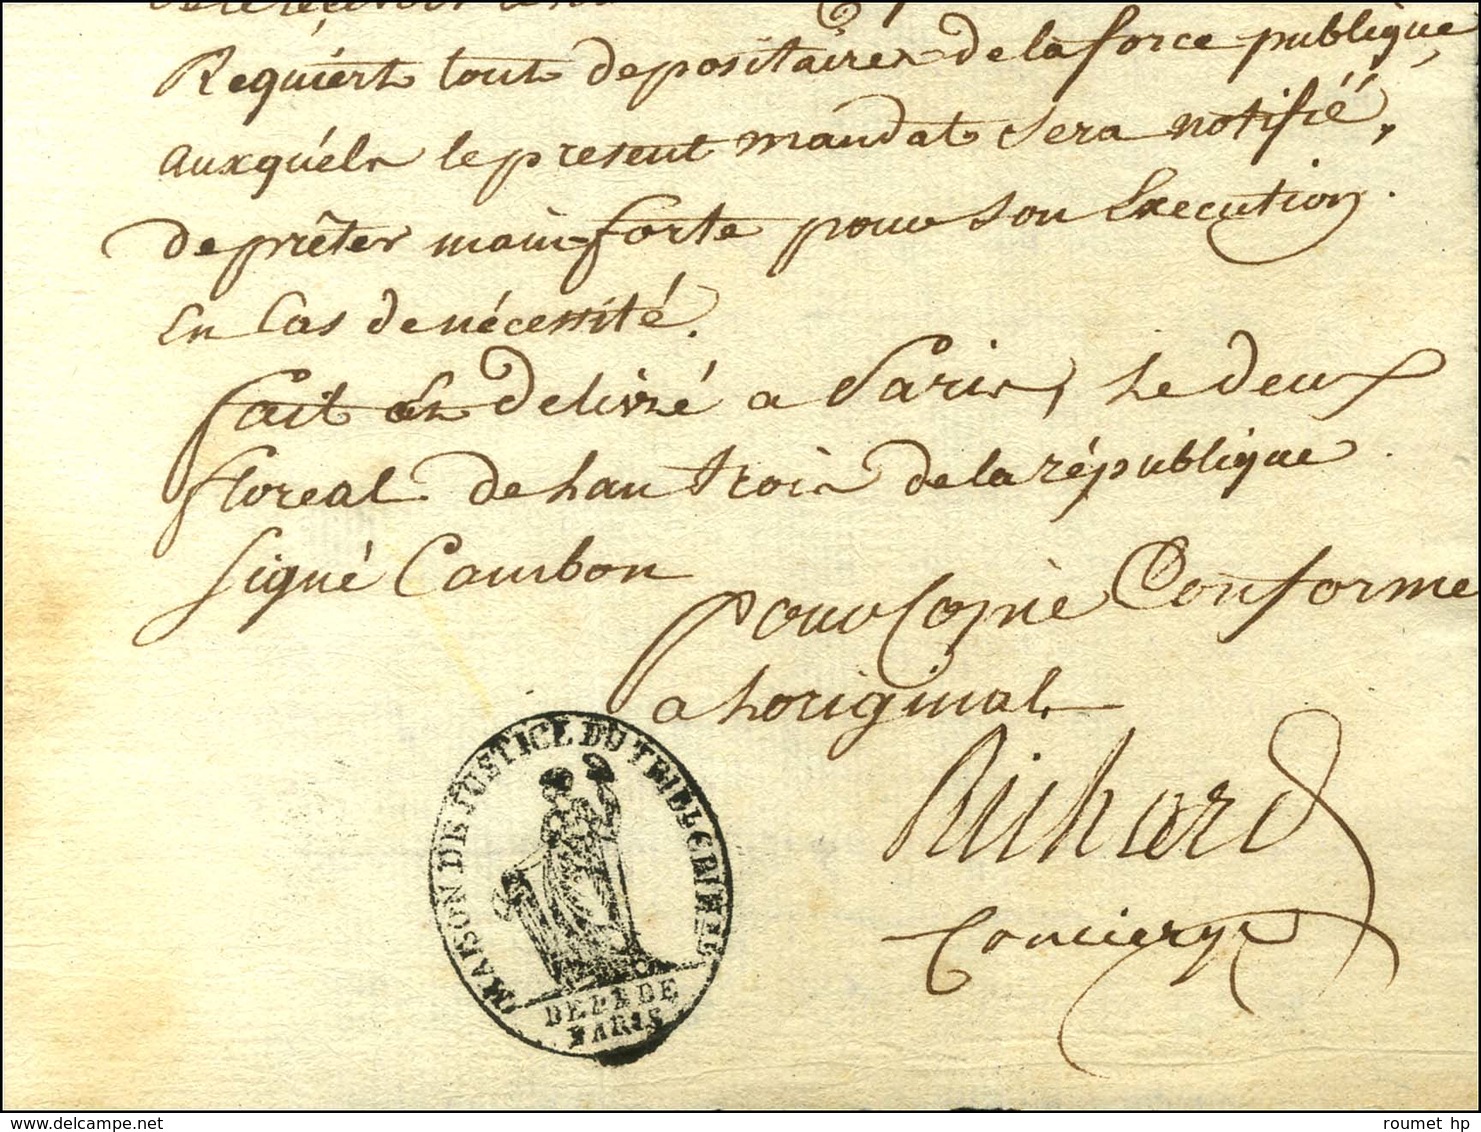 Requiert tout depositaires de la force publique,
auxquéls le present mandat sera notifié,
de prêter main forte pour son Execution
En Cas de nécessité.
fait et délivré a Paris, le deux
floreal de lan trois de la république
Signé Cambon
pour Copie Conforme
a loriginal
Richard
Concierge
MAISON DE JUSTICE DU TRIB. CRIMEL
DEP. DE
PARIS
roumet hp